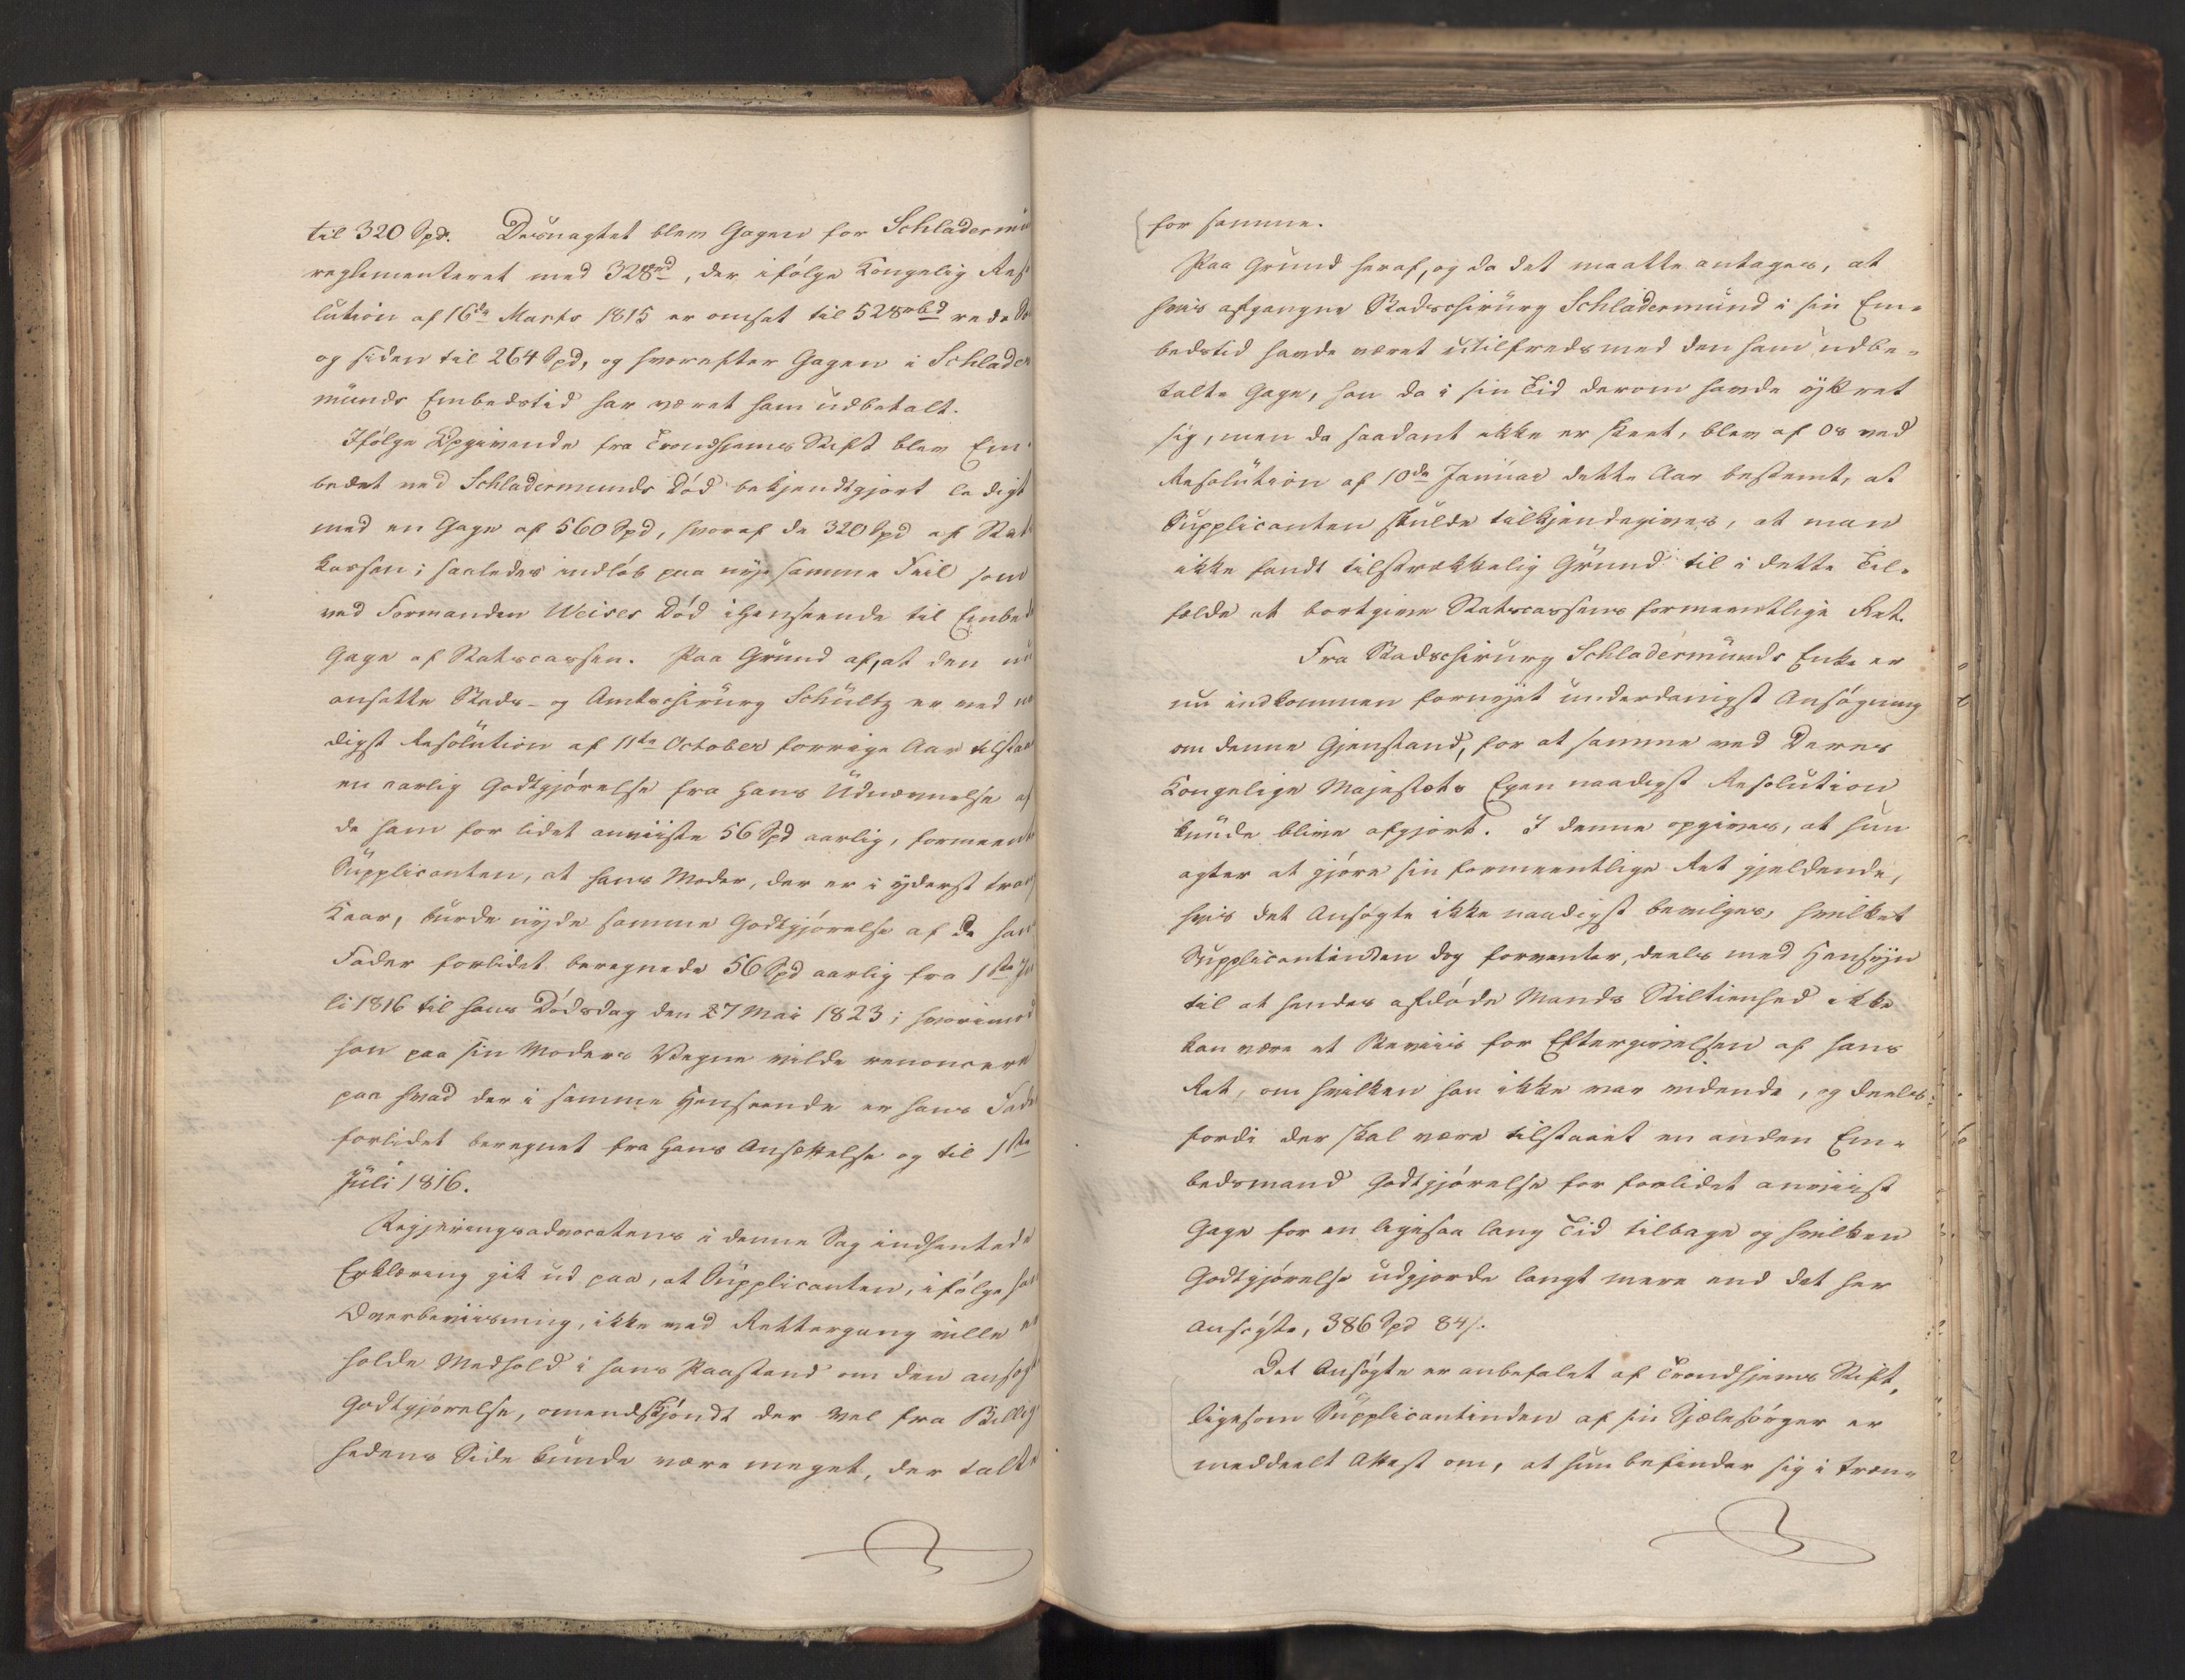 til 320 Spd. Desuagtet blev Gagen for Schladermün
reglementeret med 328rd, der ifølge Kongelig Reso
lution af 16de Marts 1815 er omsat til 528rbd rede
og siden til 264 Spd, og hvorefter Gagen i Schlader
münds Embedstid har været ham udbetalt.
Ifølge Opgivende fra Trondhjems Stift blev Em-
bedet ved Schladermunds Død bekjendtgjort ledigt
med en Gage af 560 Spd, hvoraf de 320 Spd af Stats
kassen; saaledes indløb paa nye samme Feil som
ved Formanden Weises Død ihenseende til Embed
Gage af Statscassen. Paa Grund af, at den nu
ansatte Stads- og Amtschirurg Schültz er ved na
digst Resolution af 11te October forrige Aar tilstaa
en aarlig Godtgjørelse fra hans Udnævnelse af
de ham for lidet anviiste 56 Spd aarlig, formeente
Supplicanten, at hans Moder, der er i yderst tran
Kaar, burde nyde samme Godtgjørelse af de hans
Fader forlidet beregnede 56 Spd aarlig fra 1ste Ju
li 1816 til hans Dødsdag den 27 Mai 1823; hvorimod
han paa sin Moders Vegne vilde renoncere
paa hvad der i samme Henseende er hans Fader
forlidet beregnet fra hans Ansættelse og til 1ste
Juli 1816.
Regjeringsadvocatens i denne Sag indhentede
Erklæring gik ud paa, at Supplicanten, ifølge hans
Overbeviisning, ikke ved Rettergang ville er
holde Medhold i hans Paastand om den ansøgte
Godtgjørelse, omendskjøndt der vel fra Billig
hedens Side kunde være meget, der talte
for samme.
Paa Grund heraf, og da det maatte antages, at
hvis afgangne Stadschirurg Schladermünd i sin Em-
bedstid havde været utilfreds med den ham udbe-
talte Gage, han da i sin Tid derom havde yttret
sig, men da saadant ikke er skeet, blev af Os ved
Resolution af 10de Januar dette Aar bestemt, at
Supplicanten skulde tilkjendegives, at man
ikke fandt tilstrækkelig Grund til i dette Til-
fælde at bortgive Statscassens formeentlige Ret.
Fra Stadschirurg Schladermünds Enke er
nu indkommen fornyet underdanigst Ansøgning
om denne Gjenstand, for at samme ved Deres
Kongelige Majestæts Egen naadigst Resolution
kunde blive afgjort. I denne opgives, at hun
agter at gjøre sin formeentlige Ret gjeldende,
hvis det Ansøgte ikke naadigst bevilges, hvilket
Supplicantinden dog forventer, deels med Hensyn
til at hendes afdøde Mands Stiltienhed ikke
kan være et Beviis for Eftergivelsen af hans
Ret, om hvilken han ikke var vidende, og deels
fordi der skal være tilstaaet en anden Em-
bedsmand Godtgjørelse for forlidet anviist
Gage for en ligesaa lang Tid tilbage og hvilken
Godtgjørelse udgjorde langt mere end det her
Ansøgte, 386 Spd 84 s.
Det Ansøgte er anbefalet af Trondhjems Stift,
ligesom Supplicantinden af sin Sjælesørger er
meddeelt Attest om, at hun befinder sig i træn-